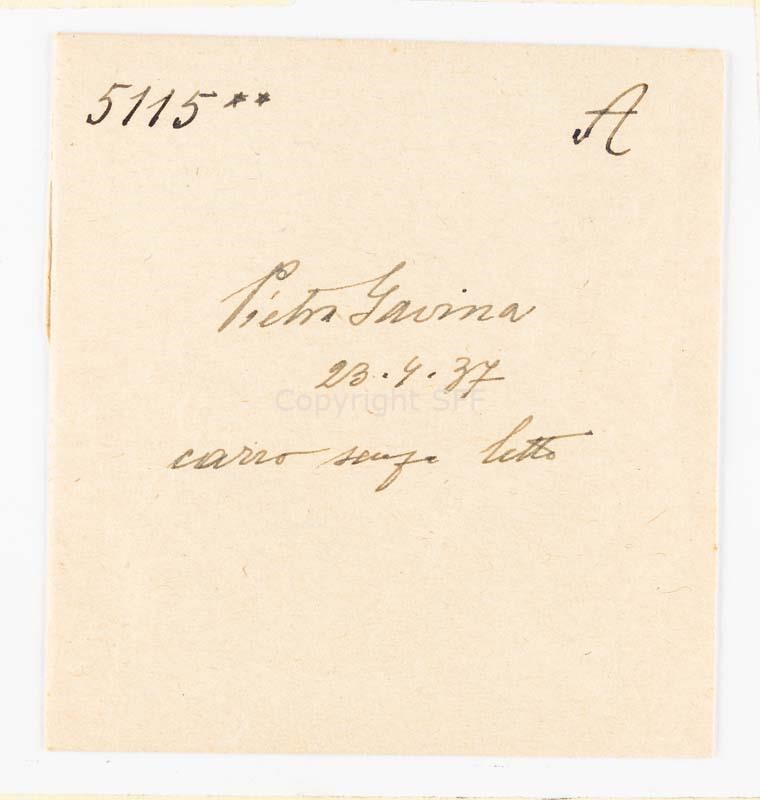 5115** A
Pietro Gavina
23.4.37
Copyright SFF
carro senza letto